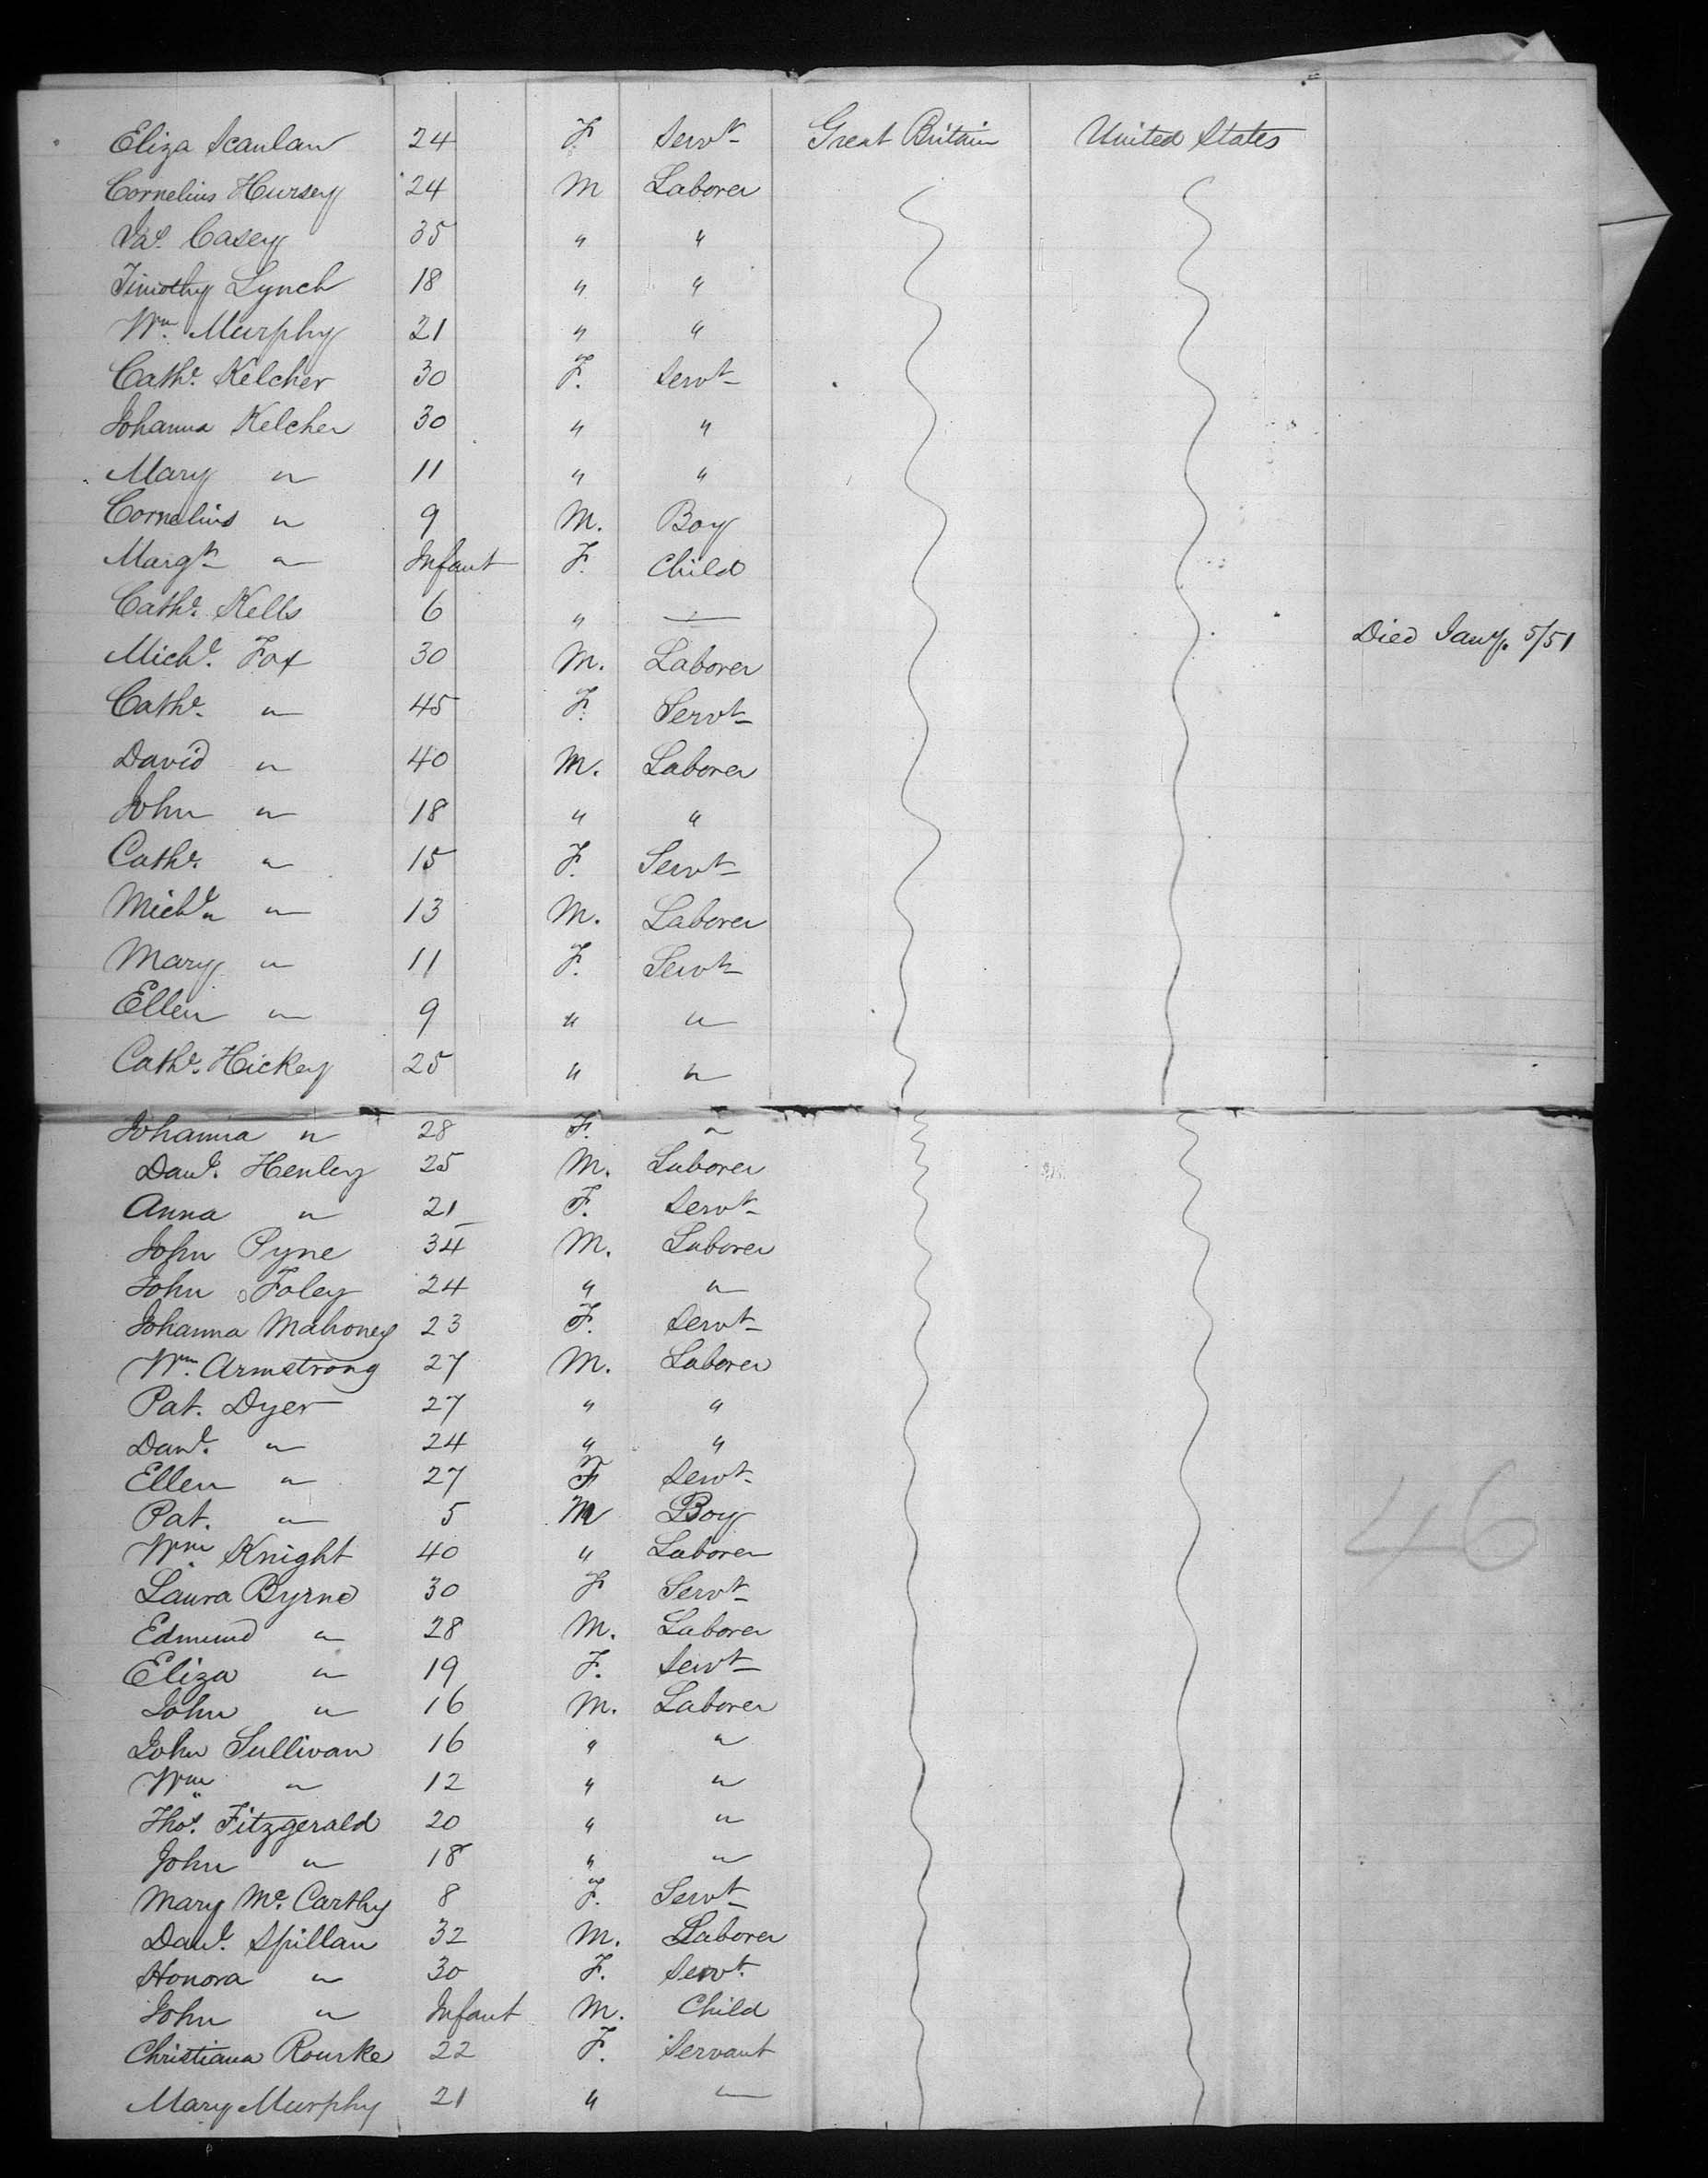 Eliza Scanlan 24 F. Servt Great Britain United States
Cornelius Hursey 24 M Laborer
Jas. Casey 35 " "
Timothy Lynch 18 " "
Wm. Murphy 21 " "
Cathe. Kelcher 30 F. Servt
Johanna Kelcher 30 " "
Mary " 11 " "
Cornelius " 9 M. Boy
Margt " Infant F. Child
Cathe. Kells 6 " — Died Jany. 5/51
Michl. Fox 30 M. Laborer
Cathe. " 45 F. Servt
David " 40 M. Laborer
John " 18 " "
Cathe. " 15 F. Servt
Michl. " 13 M. Laborer
Mary " 11 F. Servt
Ellen " 9 " "
Cathe. Hickey 25 " "
Johanna " 28 F. "
Danl. Henley 25 M. Laborer
Anna " 21 F. Servt
John Pyne 34 M. Laborer
John Foley 24 " "
Johanna Mahoney 23 F. Servt
Wm. Armstrong 27 M. Laborer
Pat. Dyer 27 " "
Danl. " 24 " "
Ellen " 27 F Servt
Pat. " 5 M Boy
Wm. Knight 40 " Laborer 46
Laura Byrne 30 F Servt
Edmund " 28 M. Laborer
Eliza " 19 F. Servt
John " 16 M. Laborer
John Sullivan 16 " "
Wm " 12 " "
Thos. Fitzgerald 20 " "
John " 18 " "
Mary Mc. Carthy 8 F. Servt
Danl. Spillan 32 M. Laborer
Honora " 30 F. Servt.
John " Infant M. Child
Christiana Rourke 22 F. Servant
Mary Murphy 21 " "